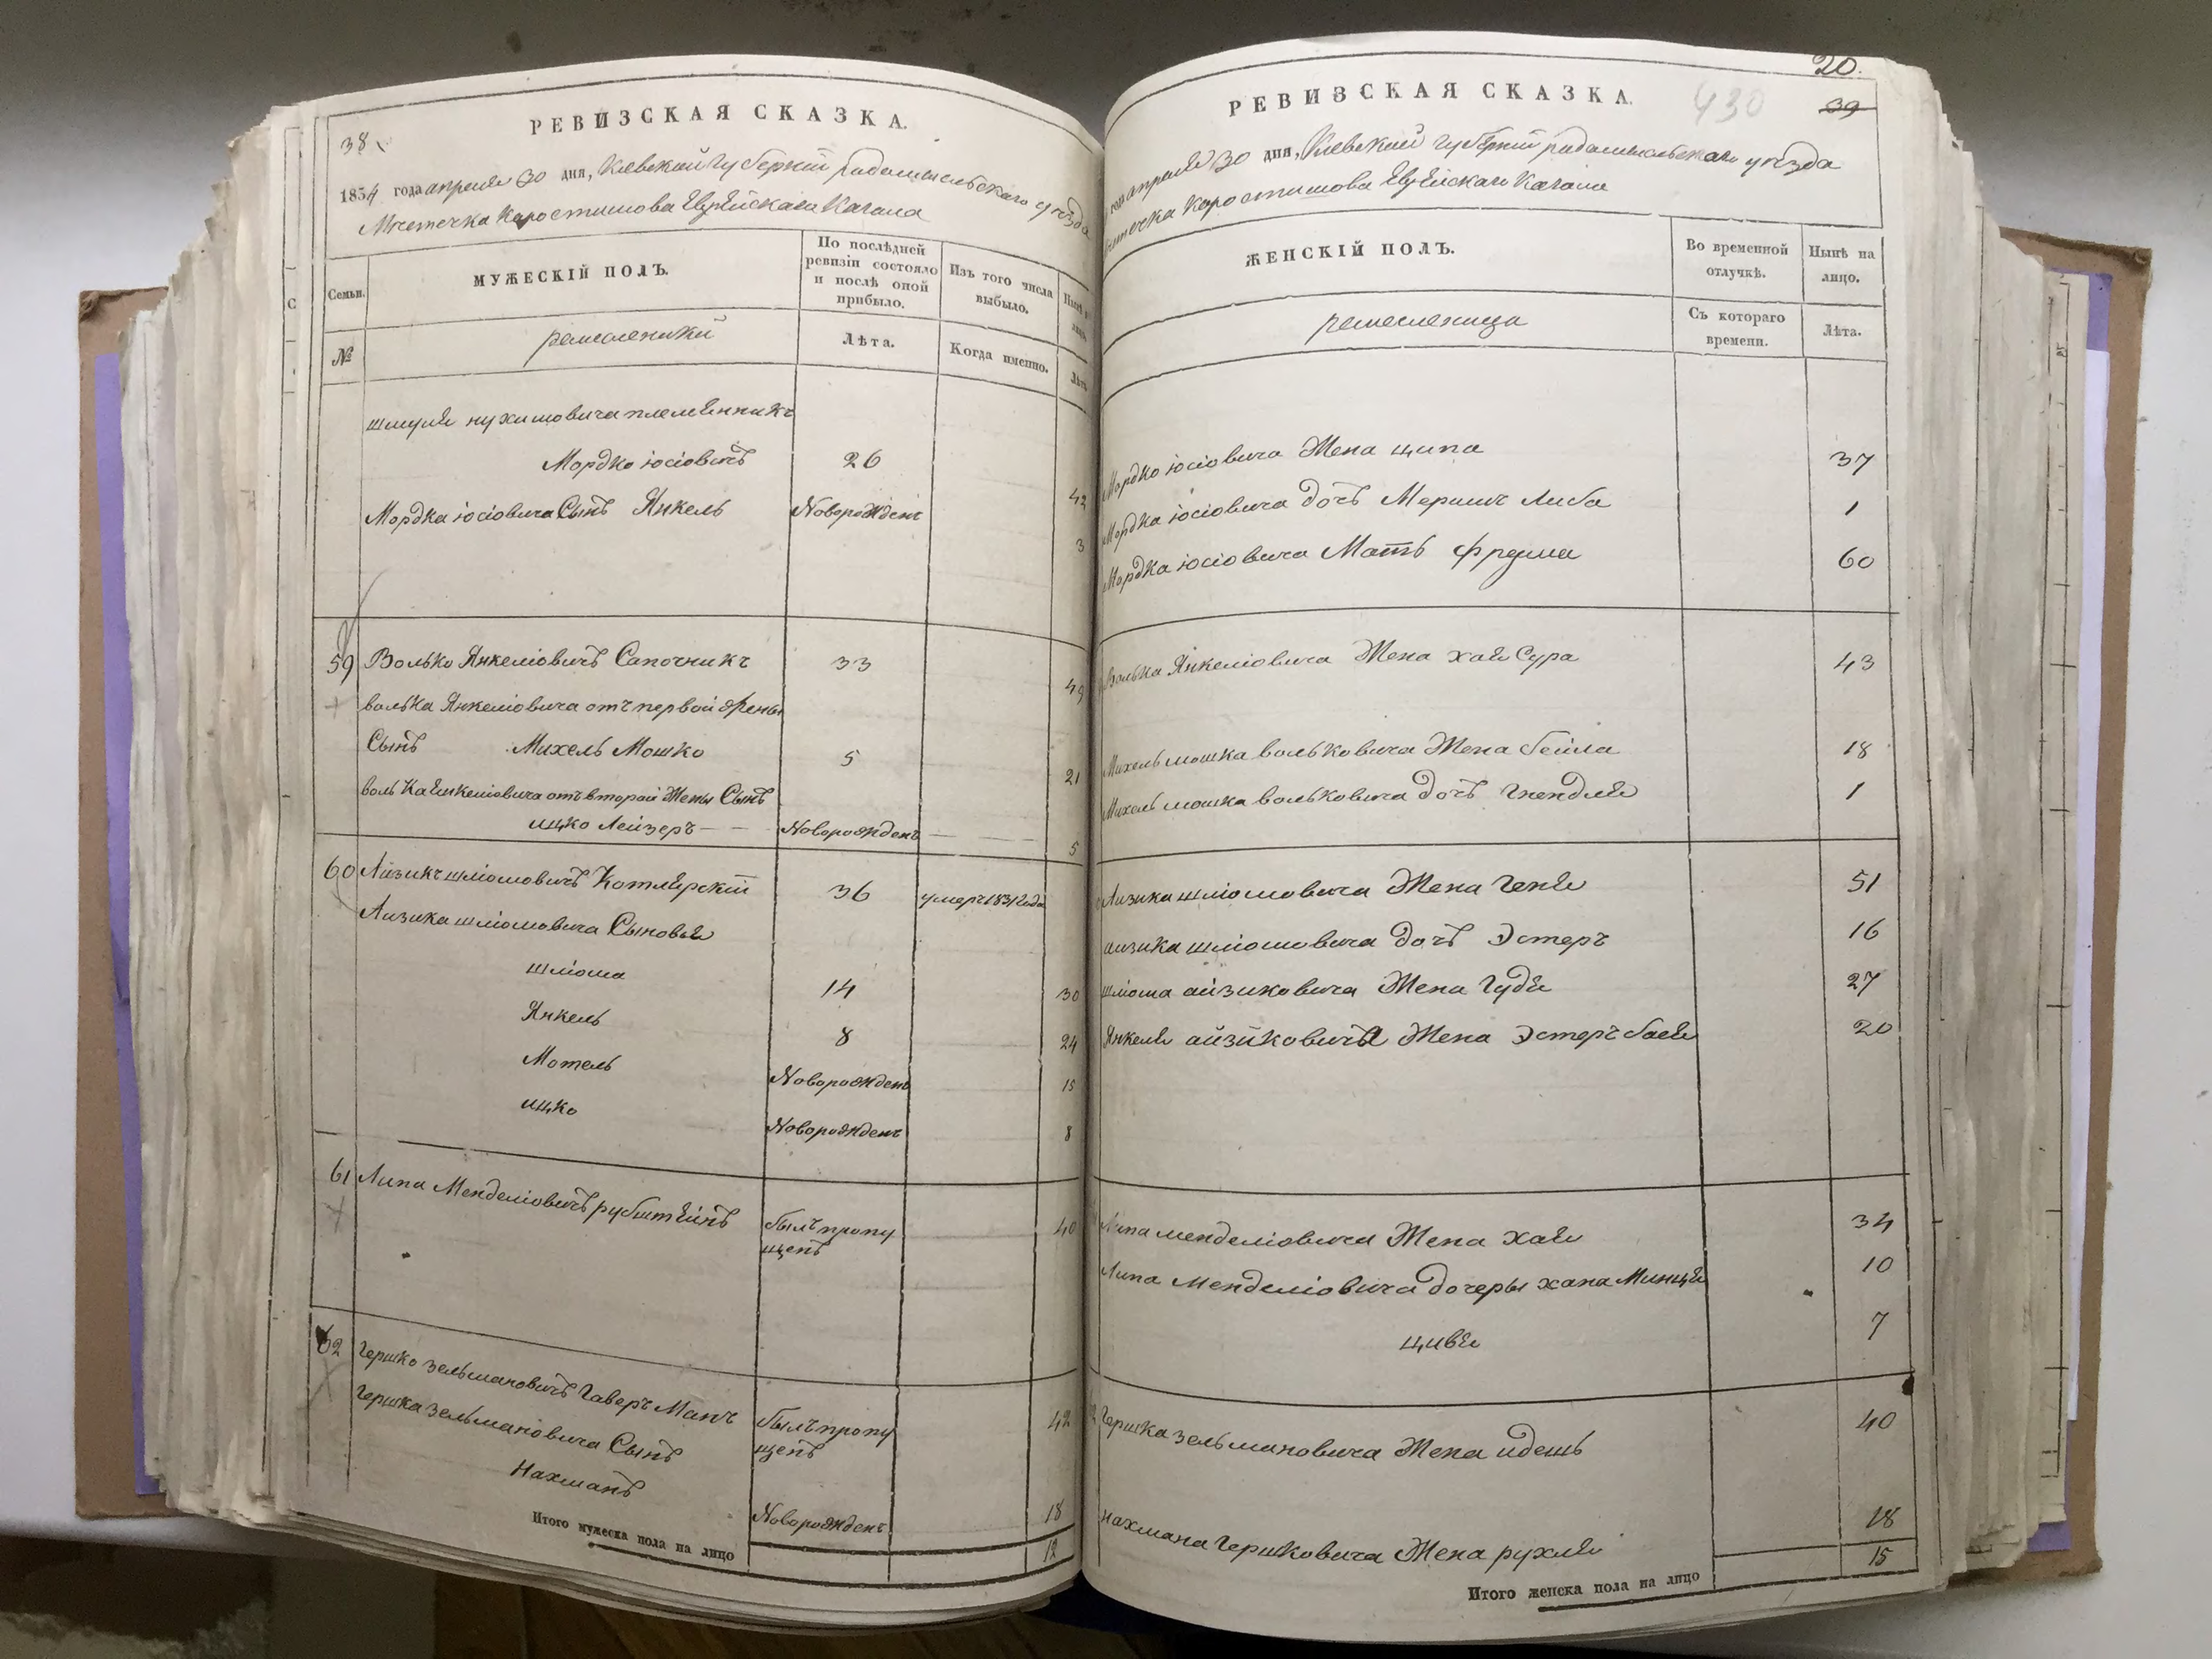 РЕВИЗСКАЯ СКАЗКА.
38
1834 года апреля 30 дня, Киевской губернии радомысльского уезда
Местечка Коростишова Еврейскаго Кагала
Семьи.
МУЖЕСКІЙ ПОЛЪ.
По послѣдней ревизіи состояло и послѣ оной прибыло.
Изъ того числа выбыло.
№
ремесленики
Лѣта.
Когда именно.
шмуля нухимовича племенникъ
Мордко іосіовичъ 26 42
Мордка іосіовича Сынъ Янкель Новорожденъ 3
59 Волько Янкеліовичъ Сапочникъ 33 49
волька Янкеліовича отъ первой жены
Сынъ Михель Мошко 5 21
волька Янкеліовича отъ второй Жены Сынъ
ицко Лейзеръ — — Новорожденъ 5
60 Айзикъ шліомовичъ Котлярскій 36 умеръ 1831 года
Айзика шліомовича Сыновья
шліома 14 30
Янкель 8 24
Мотель Новорожденъ 15
ицко Новорожденъ 8
61 Липа Менделіовичъ рубштейнъ былъ пропущенъ 40
62 Гершко зельмановичъ Гаверъ Манъ былъ пропущенъ 42
Гершка зельмановича Сынъ
Нахманъ Новорожденъ 18
Итого мужеска пола на лицо 12
20.
РЕВИЗСКАЯ СКАЗКА.
430
39
апреля 30 дня, Киевской губерній радомысльскаго уезда
Коростишова Еврейскаго Кагала
ЖЕНСКІЙ ПОЛЪ.
Во временной отлучкѣ.
Нынѣ на лицо.
ремесленица
Съ котораго времени.
Лѣта.
Мордко іосіовича Жена ципа 37
Мордка іосіовича дочь Меримъ Либа 1
Мордка іосіовича Мать фрума 60
Волька Янкеліовича Жена хая Сура 43
Михель мошка вольковича Жена бейла 18
Михель мошка вольковича дочь гнендля 1
Айзика шліомовича Жена Геня 51
аизика шліомовича дочь Эстеръ 16
шліома айзиковича Жена Гудя 27
Янкеля айзиковича Жена Эстеръ бася 20
Липа менделіовича Жена хая 34
Липа Менделіовича дочеры хана Минця 10
цивя 7
Гершка зельмановича Жена идешь 40
нахмана Гершковича Жена рухля 18
Итого женска пола на лицо 15